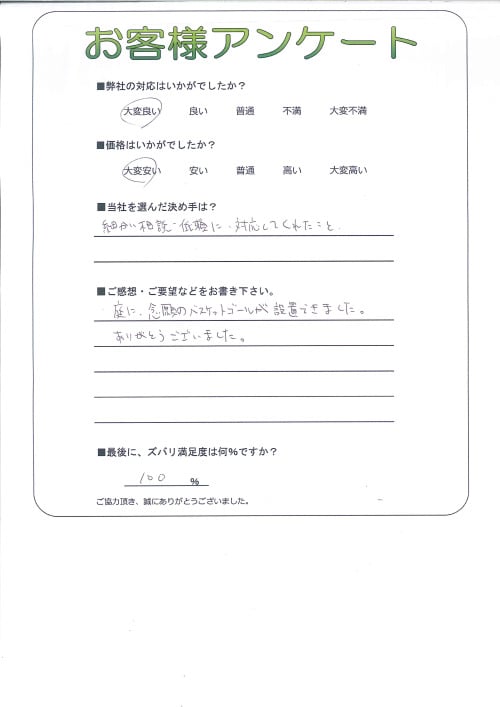 お客様アンケート
■弊社の対応はいかがでしたか？
大変良い 良い 普通 不満 大変不満
■価格はいかがでしたか？
大変安い 安い 普通 高い 大変高い
■当社を選んだ決め手は？
細かい相談・依頼に、対応してくれたこと、
■ご感想・ご要望などをお書き下さい。
庭に、念願のバスケットゴールが設置できました。
ありがとうございました。
■最後に、ズバリ満足度は何%ですか？
100 %
ご協力頂き、誠にありがとうございました。